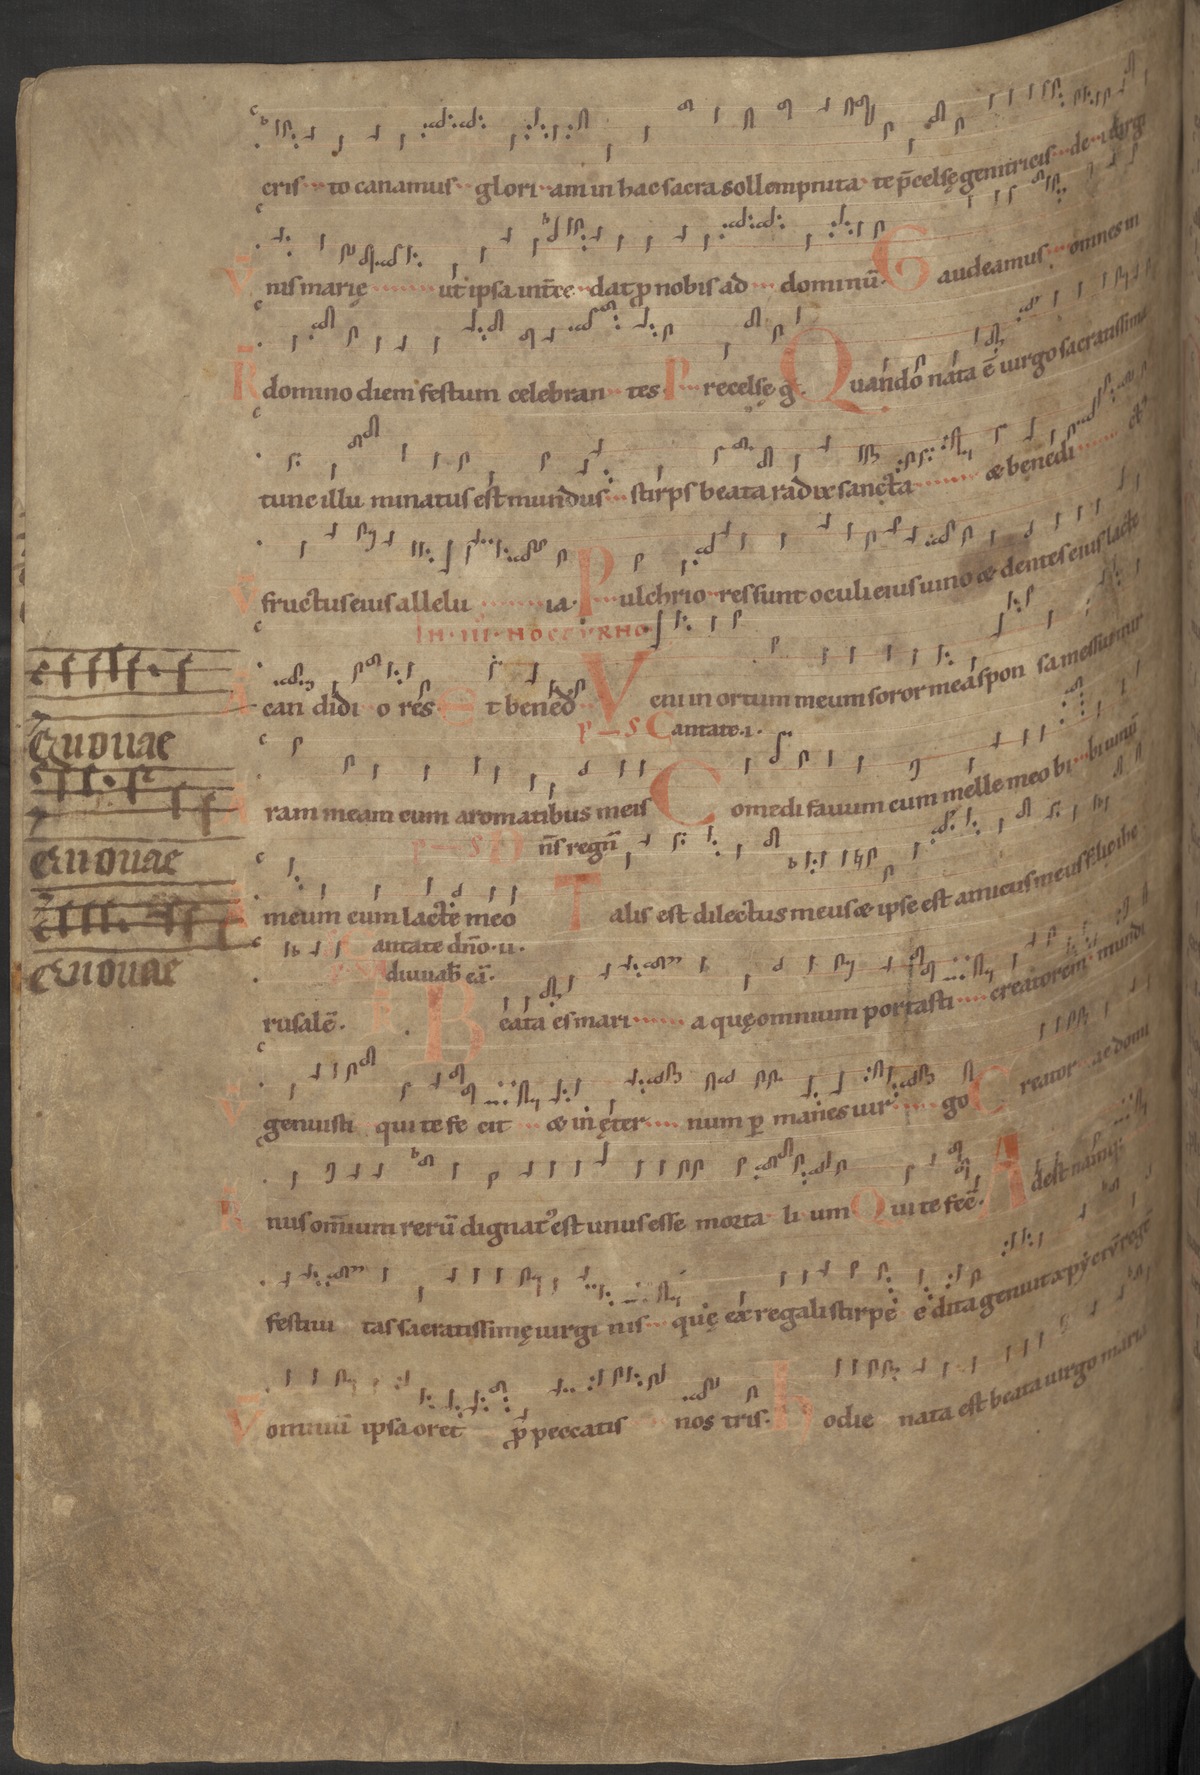 cris to canamus glori am in hac sacra sollempnita te p̄celsę genitricis de i uirgi
V̄ nis marię ut ipsa int̄ce dat ꝓ nobis ad dominū G audeamus omnes in
R̄ domino diem festum celebran tes P recelsę g̣. Q uando nata ē uirgo sacratissima
tunc illu minatus est mundus stirps beata radix sancta & benedi ct9
V̄ fructus eius allelu ia. P ulchrio res sunt oculi eius uino & dentes eius lacte
IN III NOCTVRNO
can didi o res E t bened̄ V eni in ortum meum soror mea spon sa messui mir
p s Cantate .i.
Euouae
ram meam cum aromatibus meis C omedi fauum cum melle meo bi bi uinū
p s D n̄s regn̄
Euouae
meum cum lacte meo T alis est dilectus meus & ipse est amicus meus filie ihe
Cantate dn̄o .ii.
Euouae
diuuab̄ eā.
rusalē. R̄ B eata es mari a quę omnium portasti creatorem mundi
V̄ genuisti qui te fe cit & in ęter num ꝑ manes uir go C reator ae domi
R̄ nus om̄ium rerū dignat9 est unus esse morta li um Q ui te fec̄. A dest namq;
festiui tas sacratissimę uirgi nis quę ex regali stirpe e dita genuit xp̄ c̄rv̄ regē
V̄ omniū ipsa oret ꝓ peccatis nos tris. h odie nata est beata uirgo maria